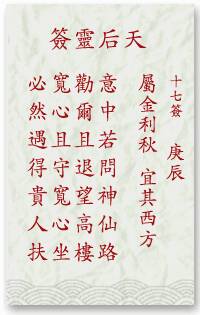 天后靈簽
十七簽 庚辰
屬金利秋 宜其西方
意中若問神仙路
勸爾且退望高樓
寬心且守寬心坐
必然遇得貴人扶